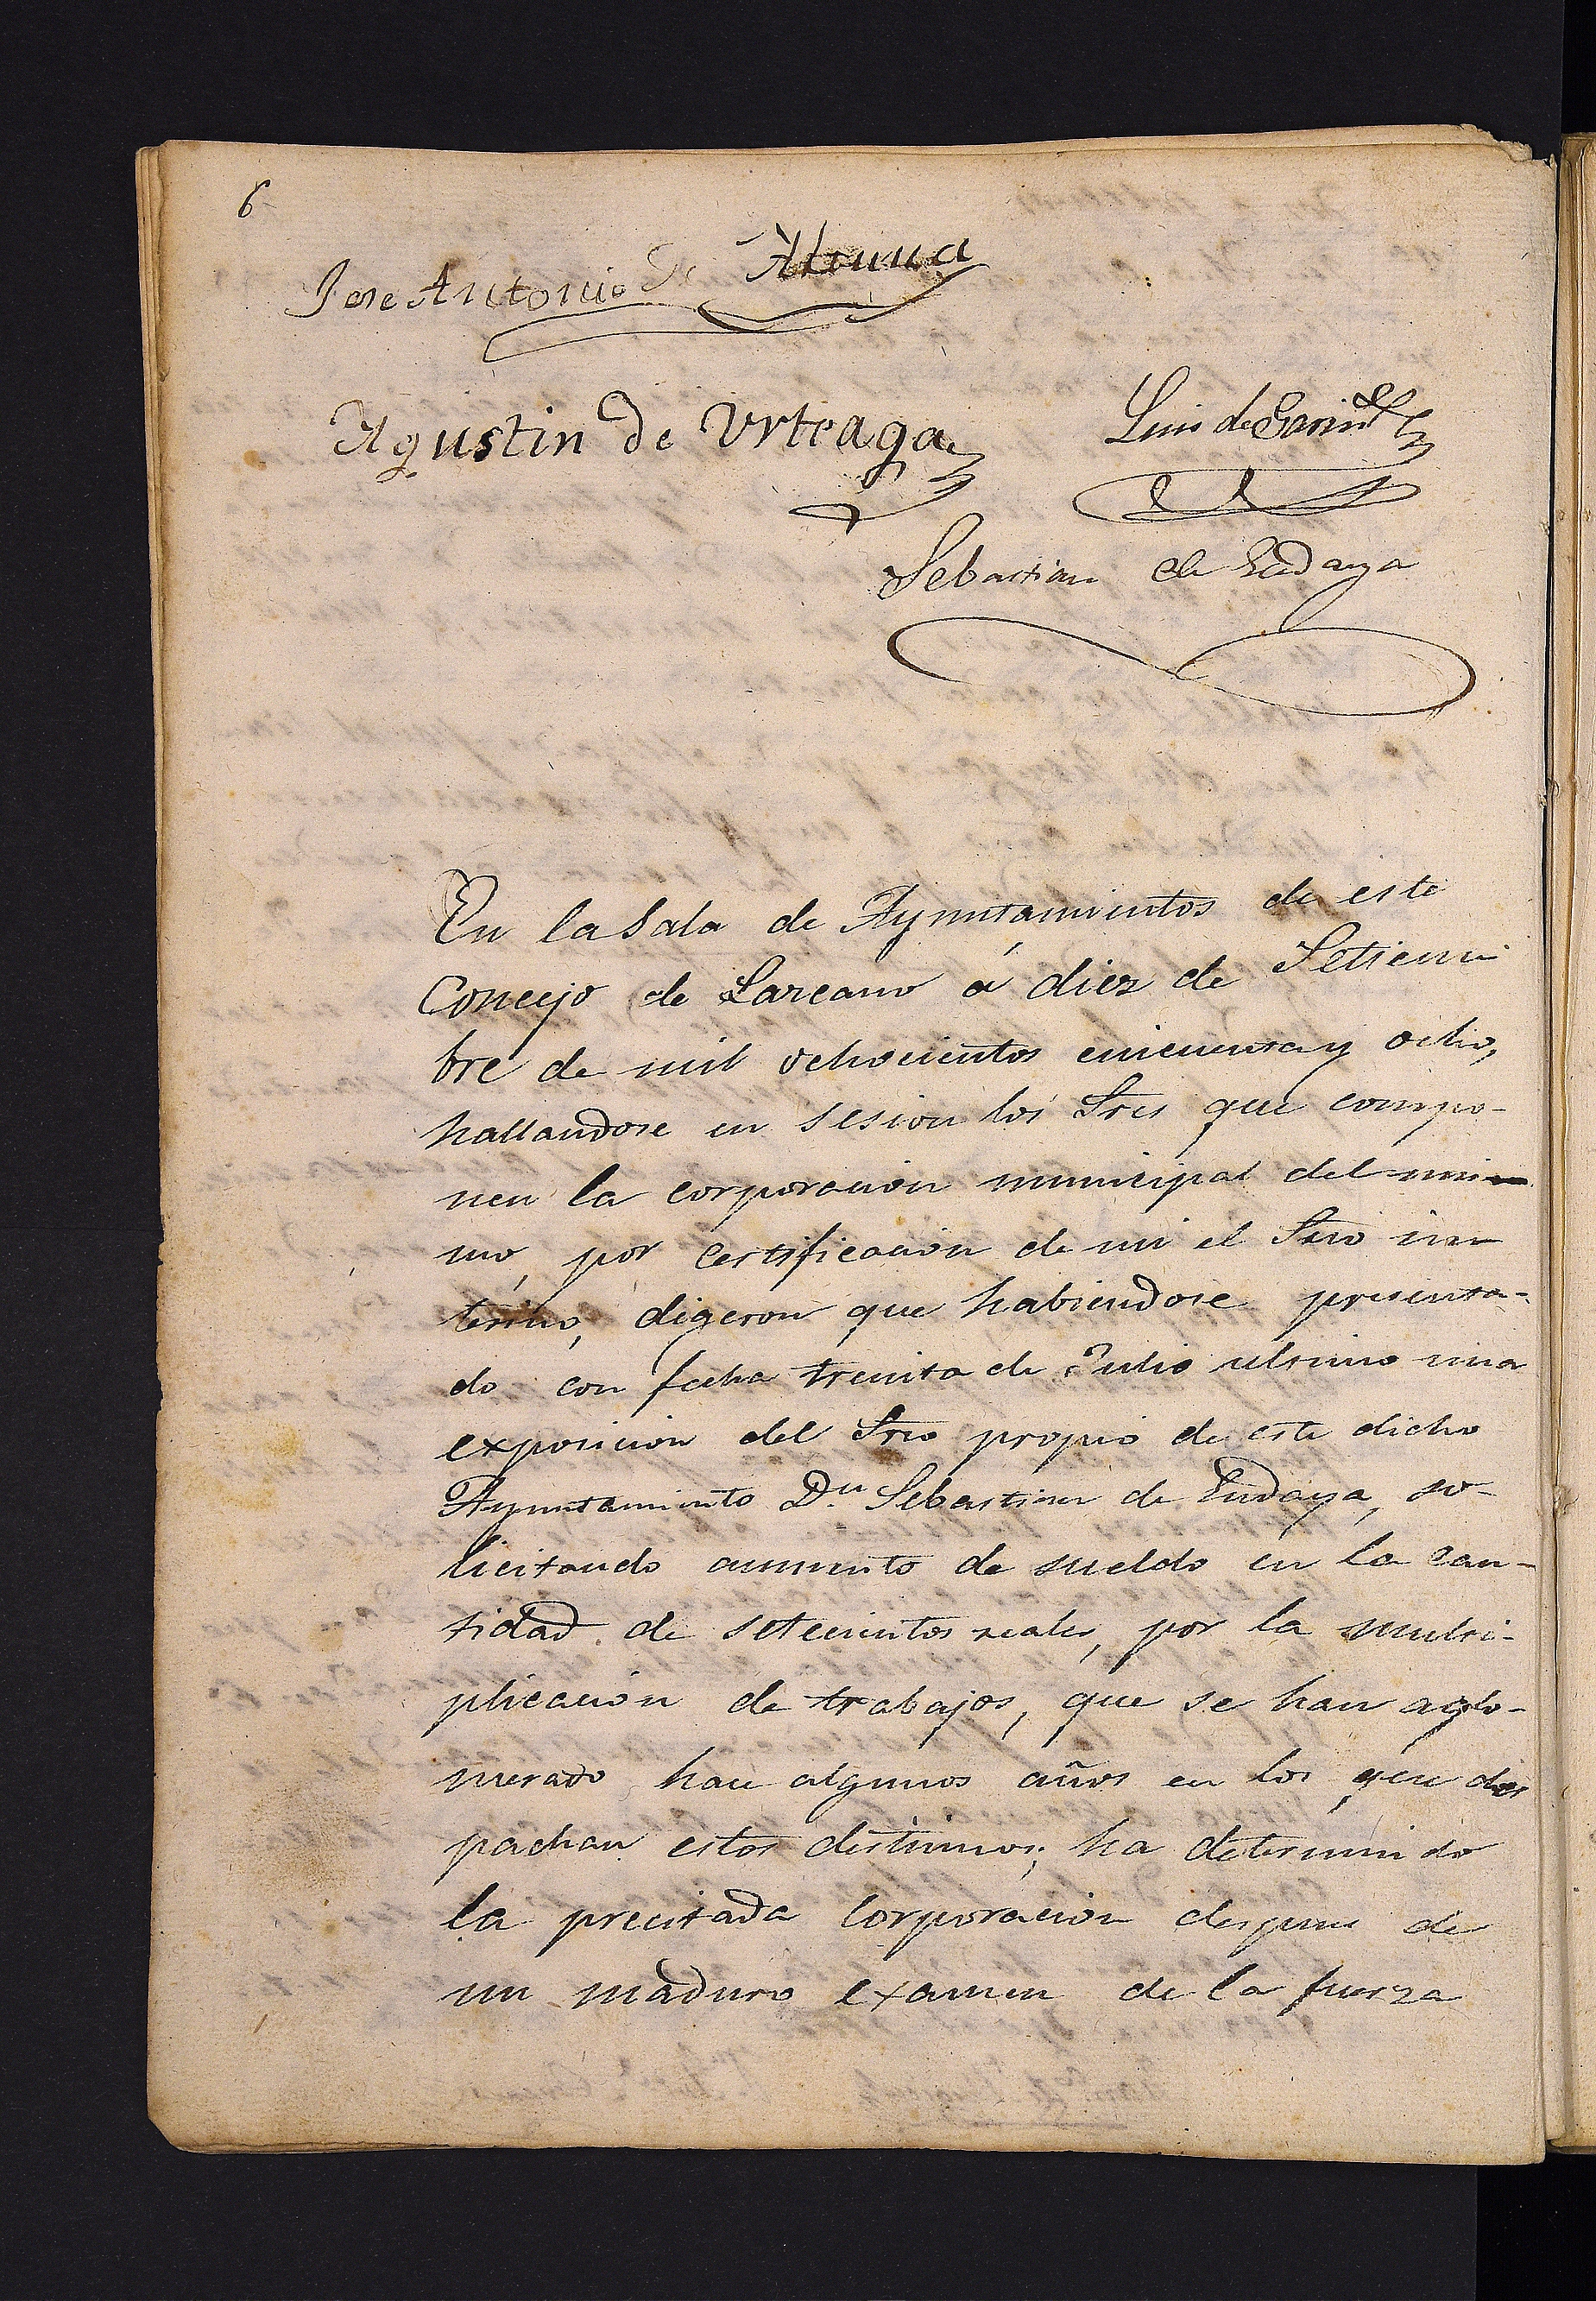 6
Jose Antonio de Alsuua
Agustin de Urteaga
Luis de
Sebastian de Endaya
En la Sala de Ayuntamientos de este
Concejo de Lazcano á diez de Setiem
bre de mil ochocientos cincuenta y ocho,
hallandose en sesion los Sres que compo-
nen la corporacion municipal del mis
mo, por certificacion de mi el Srio in
terino, digeron que habiendose presenta-
do con fecha treinta de Julio ultimo una
exposicion del Srio propio de este dicho
Ayuntamiento Dn Sebastian de Endaya, so-
licitando aumento de sueldo en la can-
tidad de setecientos reales, por la multi-
plicacion de trabajos, que se han aglo-
merado hace algunos años en los que des
pachan estos destinos; ha determindo
la precitada Corporacion despues de
un maduro examen de la fuerza